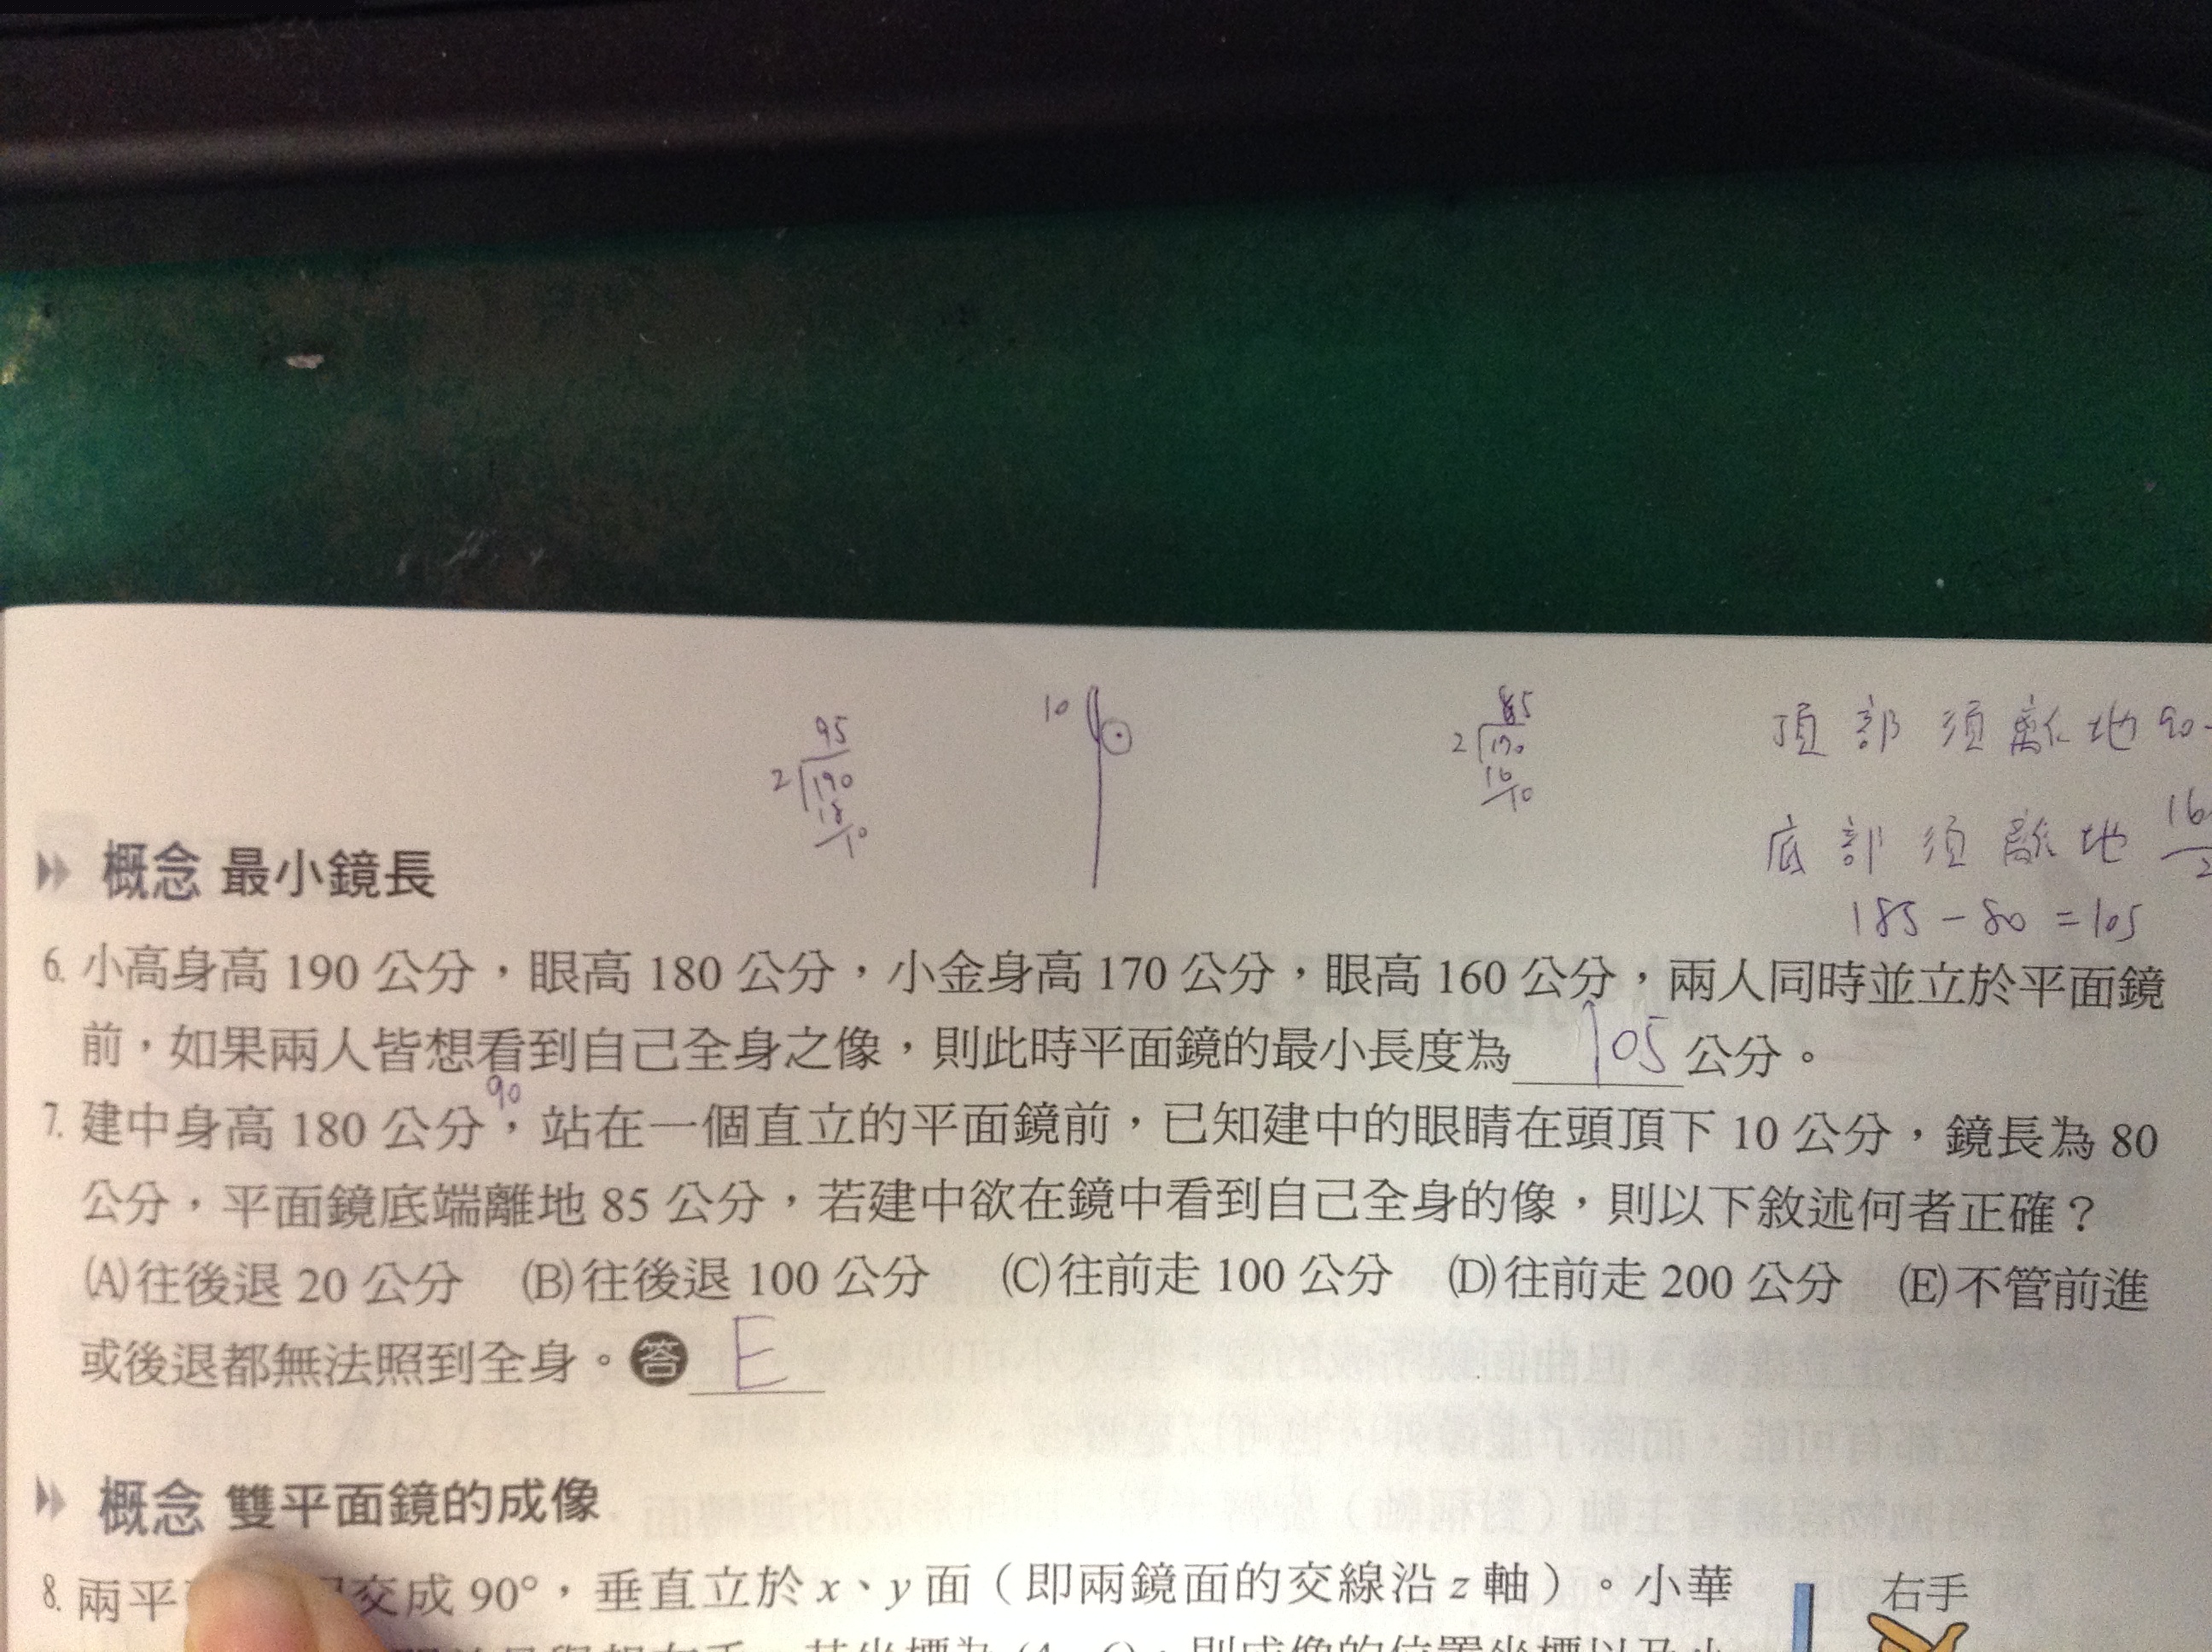 10
95
2 190
18
10
85
2 170
16
10
頂部須離地 90
底部須離地 16
2
185 - 80 = 105
概念 最小鏡長
6. 小高身高 190 公分，眼高 180 公分，小金身高 170 公分，眼高 160 公分，兩人同時並立於平面鏡
前，如果兩人皆想看到自己全身之像，則此時平面鏡的最小長度為 105 公分。
90
7. 建中身高 180 公分，站在一個直立的平面鏡前，已知建中的眼睛在頭頂下 10 公分，鏡長為 80
公分，平面鏡底端離地 85 公分，若建中欲在鏡中看到自己全身的像，則以下敘述何者正確？
(A)往後退 20 公分 (B)往後退 100 公分 (C)往前走 100 公分 (D)往前走 200 公分 (E)不管前進
或後退都無法照到全身。答 E
概念 雙平面鏡的成像
8. 兩平 交成 90°，垂直立於 x、y 面（即兩鏡面的交線沿 z 軸）。小華
右手